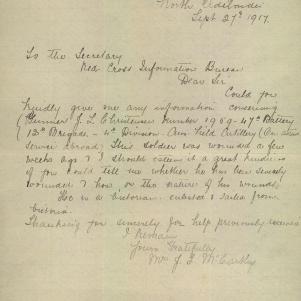 North
Sept 27th 1917.
To the Secretary
Red Cross Information Bureau
Dear Sir
Could you
kindly give me any information concerning
(Gunner J L Christensen Number 1959 - 47th Battery
12th Brigade - 4th Division - Aus Field Artillery (On active
service abroad) This soldier was wounded a few
weeks ago & I should esteem it a great kindness
if you could tell me whether he has been severely
wounded & how, or the nature of his wounds,
He is a Victorian enlisted & sailed from
Victoria.
Thanking you sincerely for help previously received
I Remain
Yours Gratefully
Mrs J L McCarthy